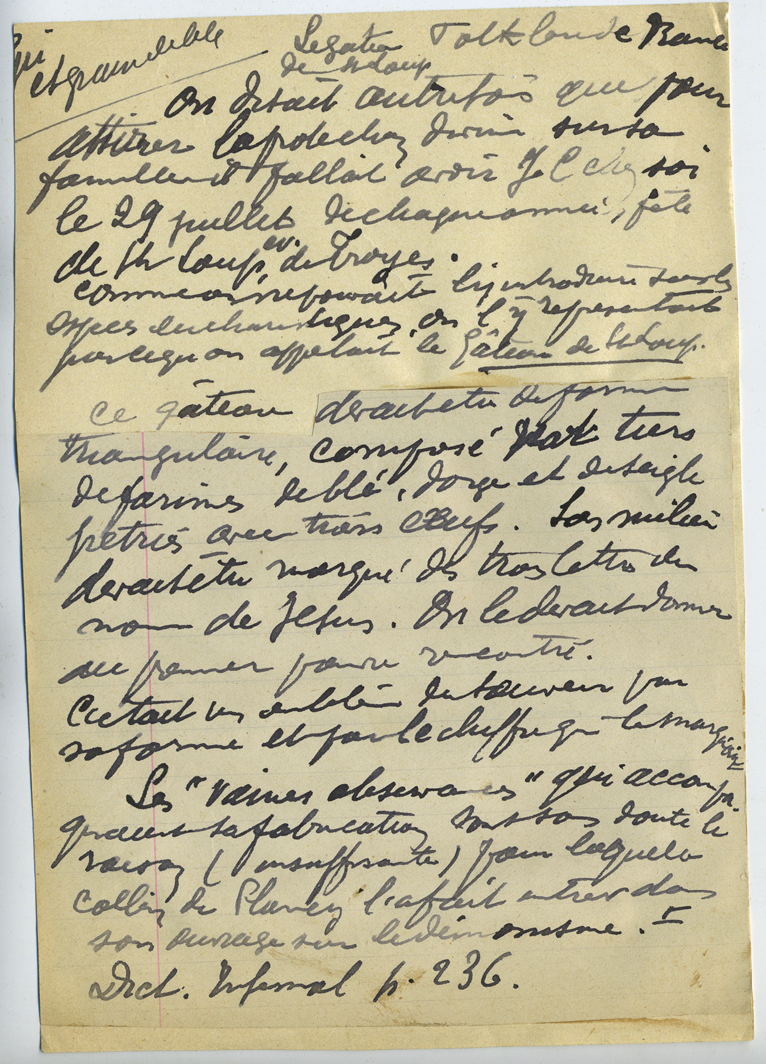 et gram deleble
Le gateau Folklore de France
de St Loup
On disait autrefois que pour
attirer la protection divine sur sa
famille il fallait avoir J. C chez soi
le 29 juillet de chaque année, fête
de St Loup, ev. de Troyes.
comme on ne pouvait l'y introduire sous les
espèces eucharistiques, on l'y représentait
par ce qu'on appelait le Gâteau de St Loup.
ce gâteau devait être de forme
triangulaire, composé par tiers
de farines de blé, d'orge et de seigle
pétries avec trois œufs. Son milieu
devait être marqué des trois lettres du
nom de Jésus. On le devait donner
au premier pauvre rencontré.
C'était un emblème du Sauveur par
sa forme et par le chiffre qui le marquait
Les "vaines observances" qui accompa-
gnaient sa fabrication sont sans doute la
raison (insuffisante) pour laquelle
Collin de Plancy l'a fait entrer dans
son ouvrage sur le démonisme. I
Dict. Infernal p. 236.